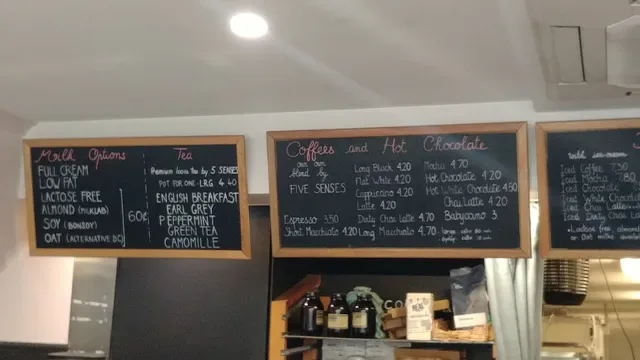 Milk Options
FULL CREAM
LOW FAT
LACTOSE FREE
ALMOND (MILKLAB)
SOY (BONSOY)
OAT (ALTERNATIVE DC)
60¢
Tea
Premium loose tea by 5 SENSES
POT FOR ONE - LRG 4.40
ENGLISH BREAKFAST
EARL GREY
PEPPERMINT
GREEN TEA
CAMOMILLE
Coffees and Hot Chocolate
our own
blend by
FIVE SENSES
Espresso 3.50
Short Macchiato 4.20
Long Black 4.20
Flat White 4.20
Cappuccino 4.20
Latte 4.20
Dirty Chai Latte 4.70
Long Macchiato 4.70
Mocha 4.70
Hot Chocolate 4.20
Hot White Chocolate 4.50
Chai Latte 4.20
Babycino 3
Iced Coffee 7.50
Iced Mocha
Iced Chocolate
Iced White Chocolate
Iced Chai
Iced Dirty Chai
Lactose free, almond
or Oat milk